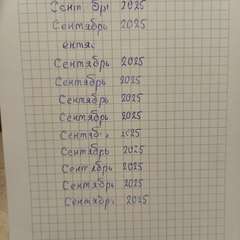 Сентябрь 2025
Сентябрь 2025
ентя
Сентябрь 2025
Сентябрь 2025
Сентябрь 2025
Сентябрь 2025
Сентябрь 2025
Сентябрь 2025
Сентябрь 2025
Сентябрь 2025
Сентябрь 2025